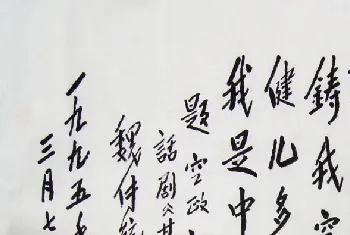 铸我空
健儿多
我是中
题空政
话剘
魏传统
一九九五
三月七